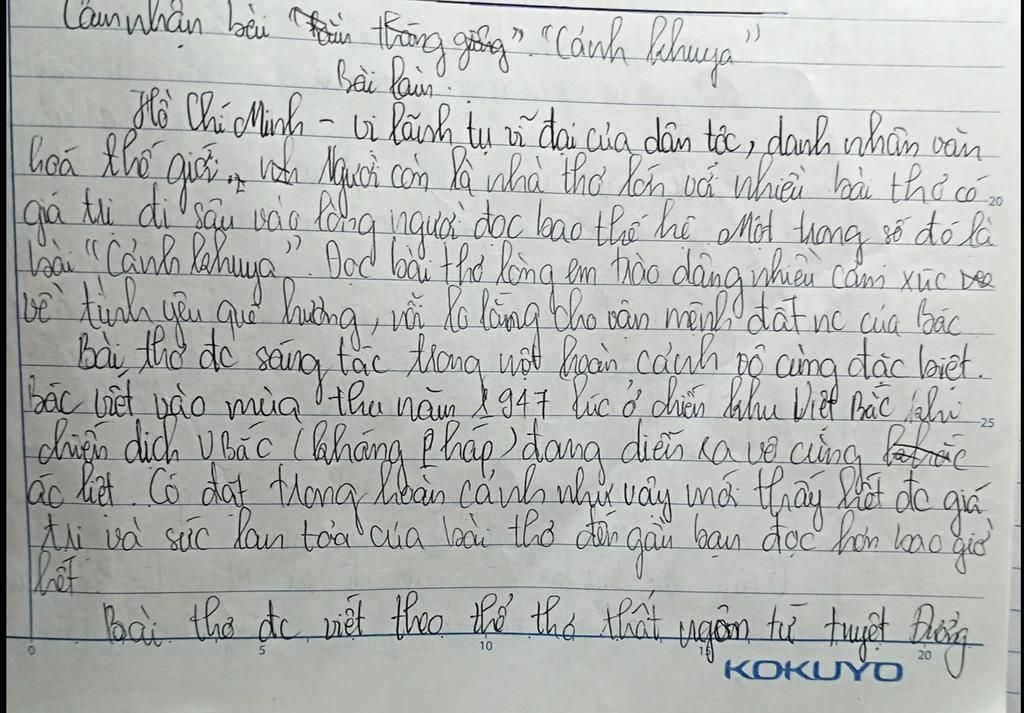 Cảm nhận bài "Rằm tháng giêng" "Cảnh khuya"
Bài làm.
Hồ Chí Minh - vị lãnh tụ vĩ đại của dân tộc, danh nhân văn
hoá thế giới. Người còn là nhà thơ lớn với nhiều bài thơ có 20
giá trị đi sâu vào lòng người đọc bao thế hệ. Một trong số đó là
bài "Cảnh khuya". Đọc bài thơ lòng em trào dâng nhiều cảm xúc
về tình yêu quê hương, nỗi lo lắng cho vận mệnh đất nc của Bác
Bài thơ đc sáng tác trong một hoàn cảnh vô cùng đặc biệt.
Bác viết vào mùa thu năm 1947 lúc ở chiến khu Việt Bắc khi 25
chiến dịch VBắc (kháng Pháp) đang diễn ra vô cùng
ác liệt. Có đặt trong hoàn cảnh như vậy mới thấy hết đc giá
trị và sức lan tỏa của bài thơ đến gần bạn đọc hơn bao giờ
hết.
Bài thơ đc viết theo thể thơ thất ngôn tứ tuyệt Đường
0 5 10 15 20
KOKUYO